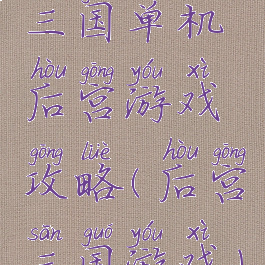 三国单机
hòu gōng yóu xì
后宫游戏
gōng lüè ( hòu gōng
攻略(后宫
sān guó yóu xì
三国游戏)